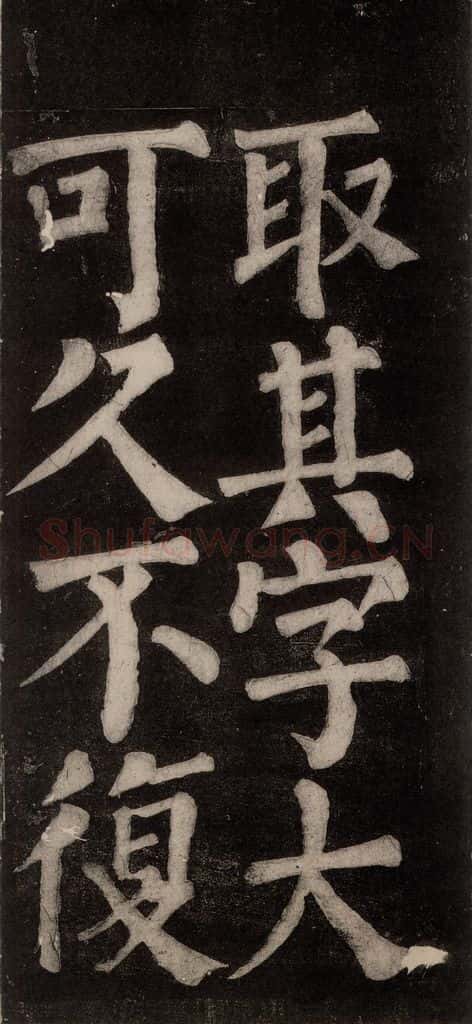 取其字大
可久不復
Shufawang.CN